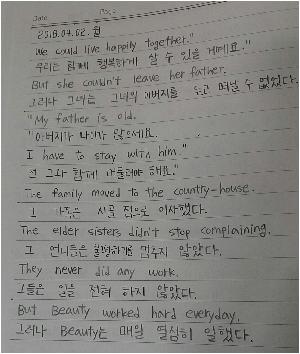 Date
2018.04.02.월
We could live happily together."
우리는 함께 행복하게 살 수 있을 거예요."
But she couldn't leave her father.
그러나 그녀는 그녀의 아버지를 두고 떠날 수 없었다.
"My father is old.
"아버지가 나이가 많으세요.
I have to stay with him."
전 그와 함께 머물러야 해요."
The family moved to the country-house.
그 가족은 시골 집으로 이사했다.
The elder sisters didn't stop complaining.
그 언니들은 불평하기를 멈추지 않았다.
They never did any work.
그들은 일을 전혀 하지 않았다.
But Beauty worked hard everyday.
그러나 Beauty는 매일 열심히 일했다.